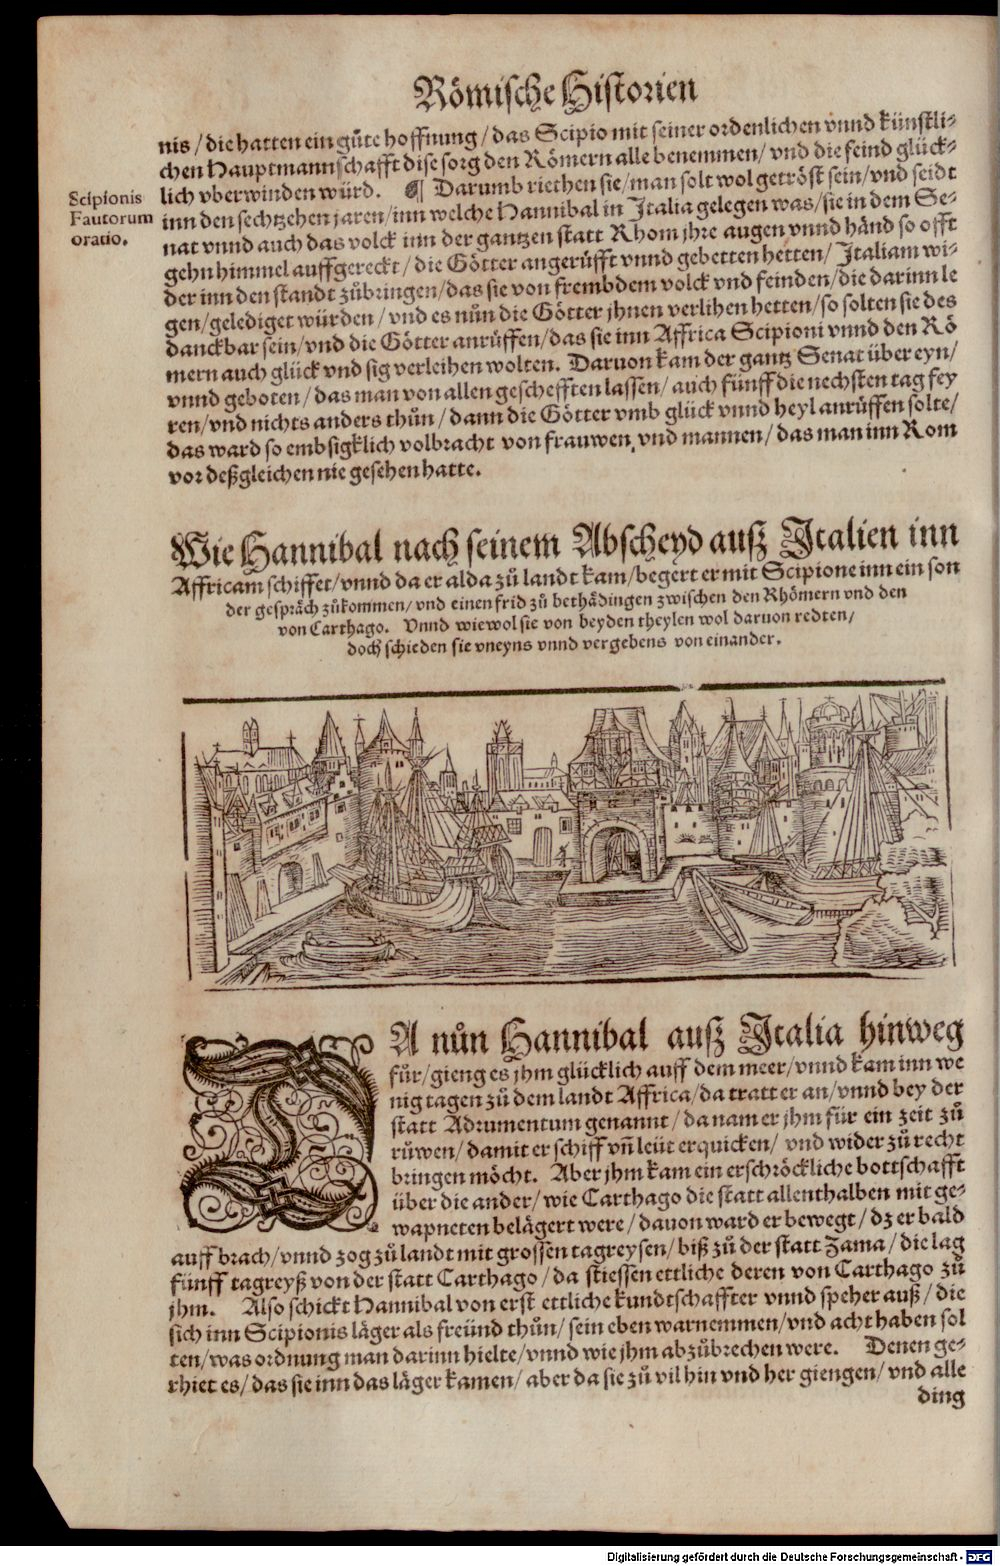 Römische Historien
nis / die hatten ein gůte hoffnung / das Scipio mit seiner ordenlichen vnnd künstli⸗
chen Hauptmannschafft dise sorg den Römern alle benemmen / vnd die feind glück⸗
lich vberwinden würd. ¶ Darumb riethen sie / man solt wol getröst sein / vnd seidt
Scipionis
Fautorum
oratio.
inn den sechtzehen jaren / inn welche Hannibal in Italia gelegen was / sie in dem Se⸗
nat vnnd auch das volck inn der gantzen statt Rhom jhre augen vnnd händ so offt
gehn himmel auffgereckt / die Götter angerüfft vnnd gebetten hetten / Italiam wi⸗
der inn den standt zůbringen / das sie von frembdem volck vnd feinden / die darinn le
gen / gelediget würden / vnd es nůn die Götter jhnen verlihen hetten / so solten sie des
danckbar sein / vnd die Götter anrüffen / das sie inn Affrica Scipioni vnnd den Rö
mern auch glück vnd sig verleihen wolten. Daruon kam der gantz Senat über eyn /
vnnd geboten / das man von allen geschefften lassen / auch fünff die nechsten tag fey
ren / vnd nichts anders thůn / dann die Götter vmb glück vnnd heyl anrüffen solte /
das ward so embsigklich volbracht von frauwen vnd mannen / das man inn Rom
vor deßgleichen nie gesehen hatte.
Wie Hannibal nach seinem Abscheyd auß Italien inn
Affricam schiffet / vnnd da er alda zů landt kam / begert er mit Scipione inn ein son
der gespräch zůkommen / vnd einen frid zů bethädingen zwischen den Rhömern vnd den
von Carthago. Vnnd wiewol sie von beyden theylen wol daruon redten /
doch schieden sie vneyns vnnd vergebens von einander.
DA nůn Hannibal auß Italia hinweg
fůr / gieng es jhm glücklich auff dem meer / vnnd kam inn we
nig tagen zů dem landt Affrica / da tratt er an / vnnd bey der
statt Adrumentum genannt / da nam er jhm für ein zeit zů
růwen / damit er schiff vñ leüt erquicken / vnd wider zů recht
bringen möcht. Aber jhm kam ein erschröckliche bottschafft
über die ander / wie Carthago die statt allenthalben mit ge⸗
wapneten belägert were / dauon ward er bewegt / dz er bald
auff brach / vnnd zog zů landt mit grossen tagreysen / biß zů der statt Zama / die lag
fünff tagreyß von der statt Carthago / da stiessen ettliche deren von Carthago zů
jhm. Also schickt Hannibal von erst ettliche kundtschaffter vnnd speher auß / die
sich inn Scipionis läger als freünd thůn / sein eben warnemmen / vnd acht haben sol
ten / was ordnung man darinn hielte / vnnd wie jhm abzůbrechen were. Denen ge⸗
rhiet es / das sie inn das läger kamen / aber da sie zů vil hin vnd her giengen / vnd alle
ding
Digitalisierung gefördert durch die Deutsche Forschungsgemeinschaft - DFG